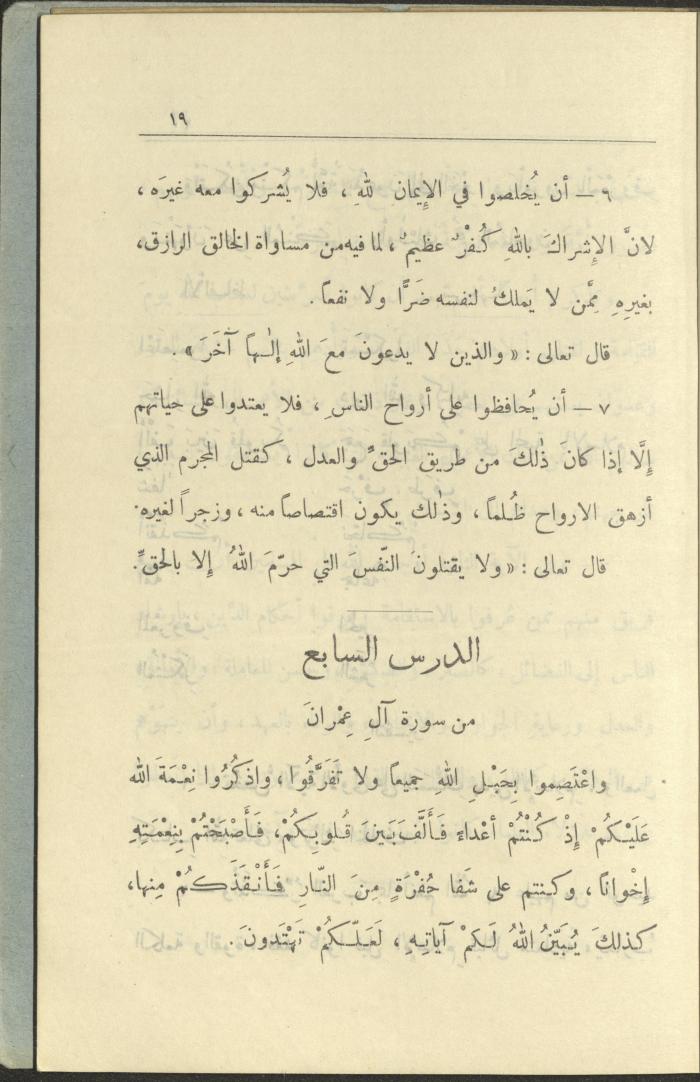 ١٩
٦ – أن يُخلصوا في الإِيمان للهِ ، فلا يُشركوا معه غيرَه ،
لانَّ الإِشراكَ باللهِ كُفْرٌ عظيمٌ ، لما فيه من مساواة الخالق الرازق،
بغيرِهِ مِمَّن لا يَملكُ لنفسه ضَرًّا ولا نفعاً .
قال تعالى : « والذين لا يدعونَ معَ اللهِ إلٰهاً آخَرَ » .
٧ – أن يُحافظوا على أرواح الناسِ ، فلا يعتدوا على حياتهم
إِلَّا إذا كانَ ذٰلكَ من طريق الحقِّ والعدل ، كقتل المجرم الذي
أزهق الارواح ظُلماً ، وذٰلك يكون اقتصاصاً منه ، وزجراً لغيره.
قال تعالى : « ولا يقتلونَ النّفسَ التي حرّمَ اللهُ إلا بالحقِّ.
الدرس السابع
من سورة آلِ عِمْرانَ
واعْتَصِموا بِحَبْلِ اللهِ جميعاً ولا تَفَرَّقُوا ، واذكُرُوا نِعْمَةَ الله
عَلَيْكُمْ إِذْ كُنْتُمْ أعْداءً فَأَلَّفَ بَينَ قُلوبِكُمْ، فَأَصْبَحْتُمْ بِنِعْمَتِهِ
إِخْوانًا ، وكنتم على شَفا حُفْرَةٍ مِنَ النّارِ فَأَنْقَذَكُمْ مِنها،
كذلكَ يُبَيِّنُ اللهُ لَكمْ آياتِهِ ، لَعَلَّكُمْ تَهْتَدونَ .